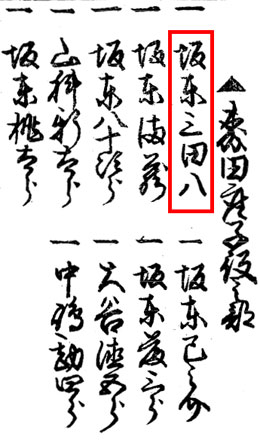 ▲森田座子役之部
一 坂東三田八
一 坂東満蔵
一 坂東八十次郎
一 山科新太郎
一 坂東桃太郎
一 坂東己之介
一 坂東三郎
一 大谷徳五郎
一 中嶋勘四郎